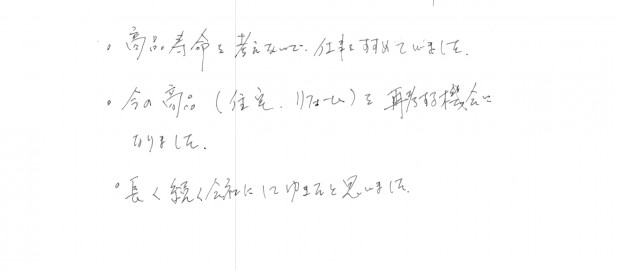 。商品寿命を考えないで、仕事をすすめていました。
。今の商品（住宅、リフォーム）を再考する機会に
なりました。
。長く続く会社にしてゆきたいと思いました。